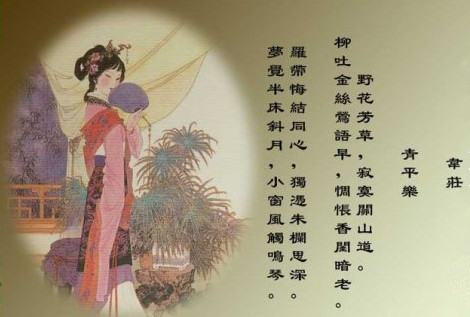 韋莊
青平樂
野花芳草，寂寞關山道。
柳吐金絲鶯語早，惆悵香閨暗老。
羅帶悔結同心，獨憑朱欄思深。
夢覺半床斜月，小窗風觸鳴琴。